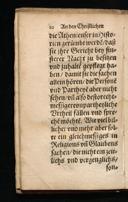 An den Christlichen
die Athenienser in Histo-
rien gerühmt werdē/ daß
sie ihr Gericht bey fin-
sterer Nacht zu besitzen
vnd zuhalte gepflegt ha-
ben / damit sie die sachen
allein hören/ die Person
vnd Partheyē aber nicht
sehen/ vn also desto rech-
messiger vnparteylicher
Vrtheil fällen vnd spre-
che möchtē. Wie viel bil-
licher vnd mehr aber sol-
te ein gemässiges in
Religions vn Glaubens
sachen/ die nicht ein zeit-
lichs vnd vergenglichs/
son-